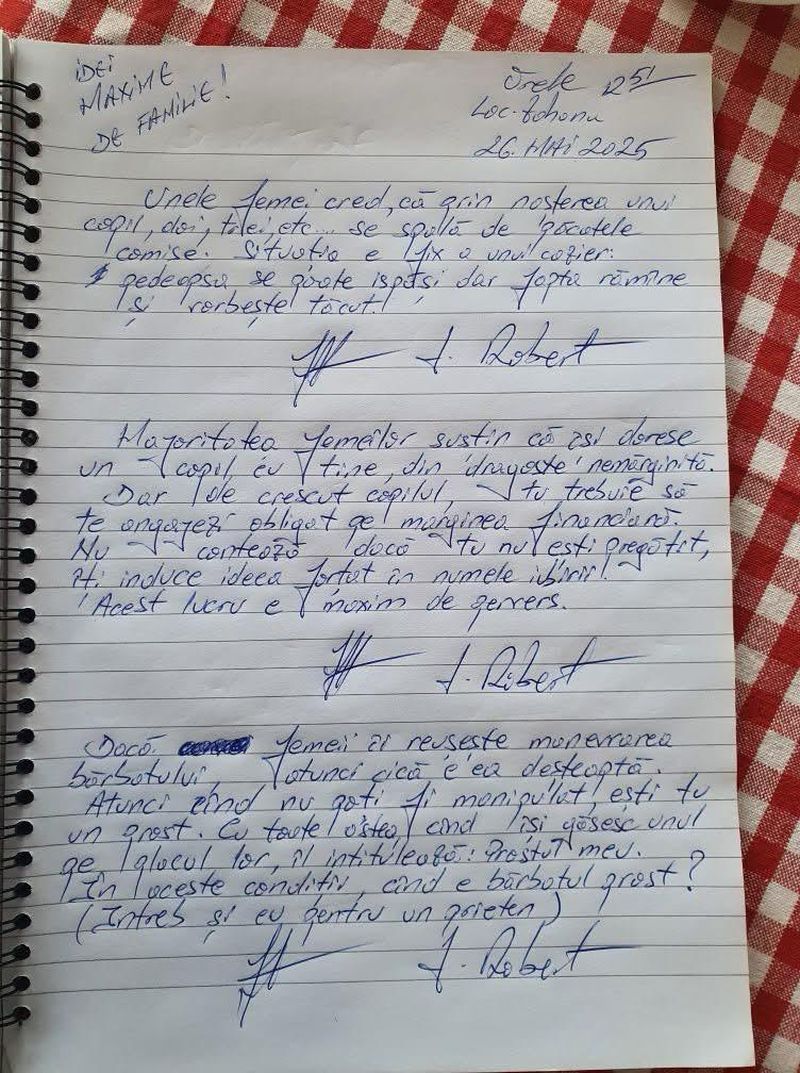 IDEI
MAXIME
DE FAMILIE!
Orele 12 51
Loc. Zohanu
26. MAI 2025
Unele femei cred, că prin nașterea unui
copil, doi, trei, etc... se spală de păcatele
comise. Situația e fix a unui cazier:
pedeapsa se poate ispăși dar fapta rămîne
și vorbește tăcut!
J. Robert
Majoritatea femeilor susțin că își doresc
un copil cu tine, din dragoste nemărginită.
Dar de crescut copilul, tu trebuie să
te angajezi obligat pe marginea financiară.
Nu contează dacă tu nu ești pregătit,
Îți induce ideea forțat în numele iubirii!
Acest lucru e maxim de pervers.
J. Robert
Dacă femeii îi reușește manevrarea
bărbatului, atunci cică e ea deșteaptă.
Atunci cînd nu poți fi manipulat, ești tu
un prost. Cu toate astea, cînd își găsesc unul
pe placul lor, îl intitulează: Prostul meu.
În aceste condiții, cînd e bărbatul prost?
(Întreb și eu pentru un prieten)
J. Robert